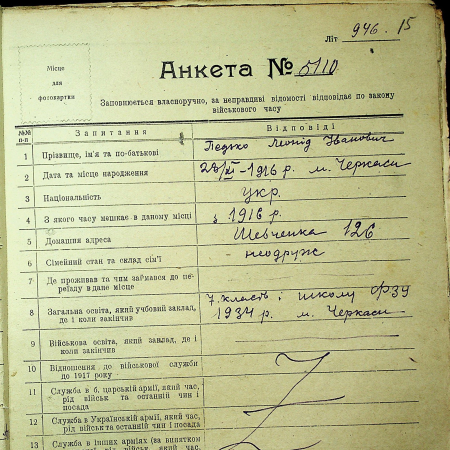 Літ 946. 15
Місце
для
фотокартки
Анкета № 5110
Заповнюється власноручно, за неправдиві відомості відповідає по закону
військового часу
№№
п-п
Запитання
Відповіді
1 Прізвище, ім'я та по-батькові Леонід Іванович
2 Дата та місце народження 29/XI - 1916 р. м. Черкаси
3 Національність укр.
4 З якого часу мешкає в даному місці з 1916 р.
5 Домашня адреса Шевченка 126
6 Сімейний стан та склад сім'ї неодруж
7 Де проживав та чим займався до пе-
реїзду в дане місце
8 Загальна освіта, який учбовий заклад,
де і коли закінчив
7 класів і школу ФЗУ
1934 р. м. Черкаси
9 Військова освіта, який заклад, де і
коли закінчив
10 Відношення до військової служби
до 1917 року
11 Служба в б. царській армії, який час,
рід військ та останній чин і
посада
12 Служба в Українській армії, який час,
рід військ та останній чин і посада
13 Служба в інших арміях (за винятком
рід військ, який час,